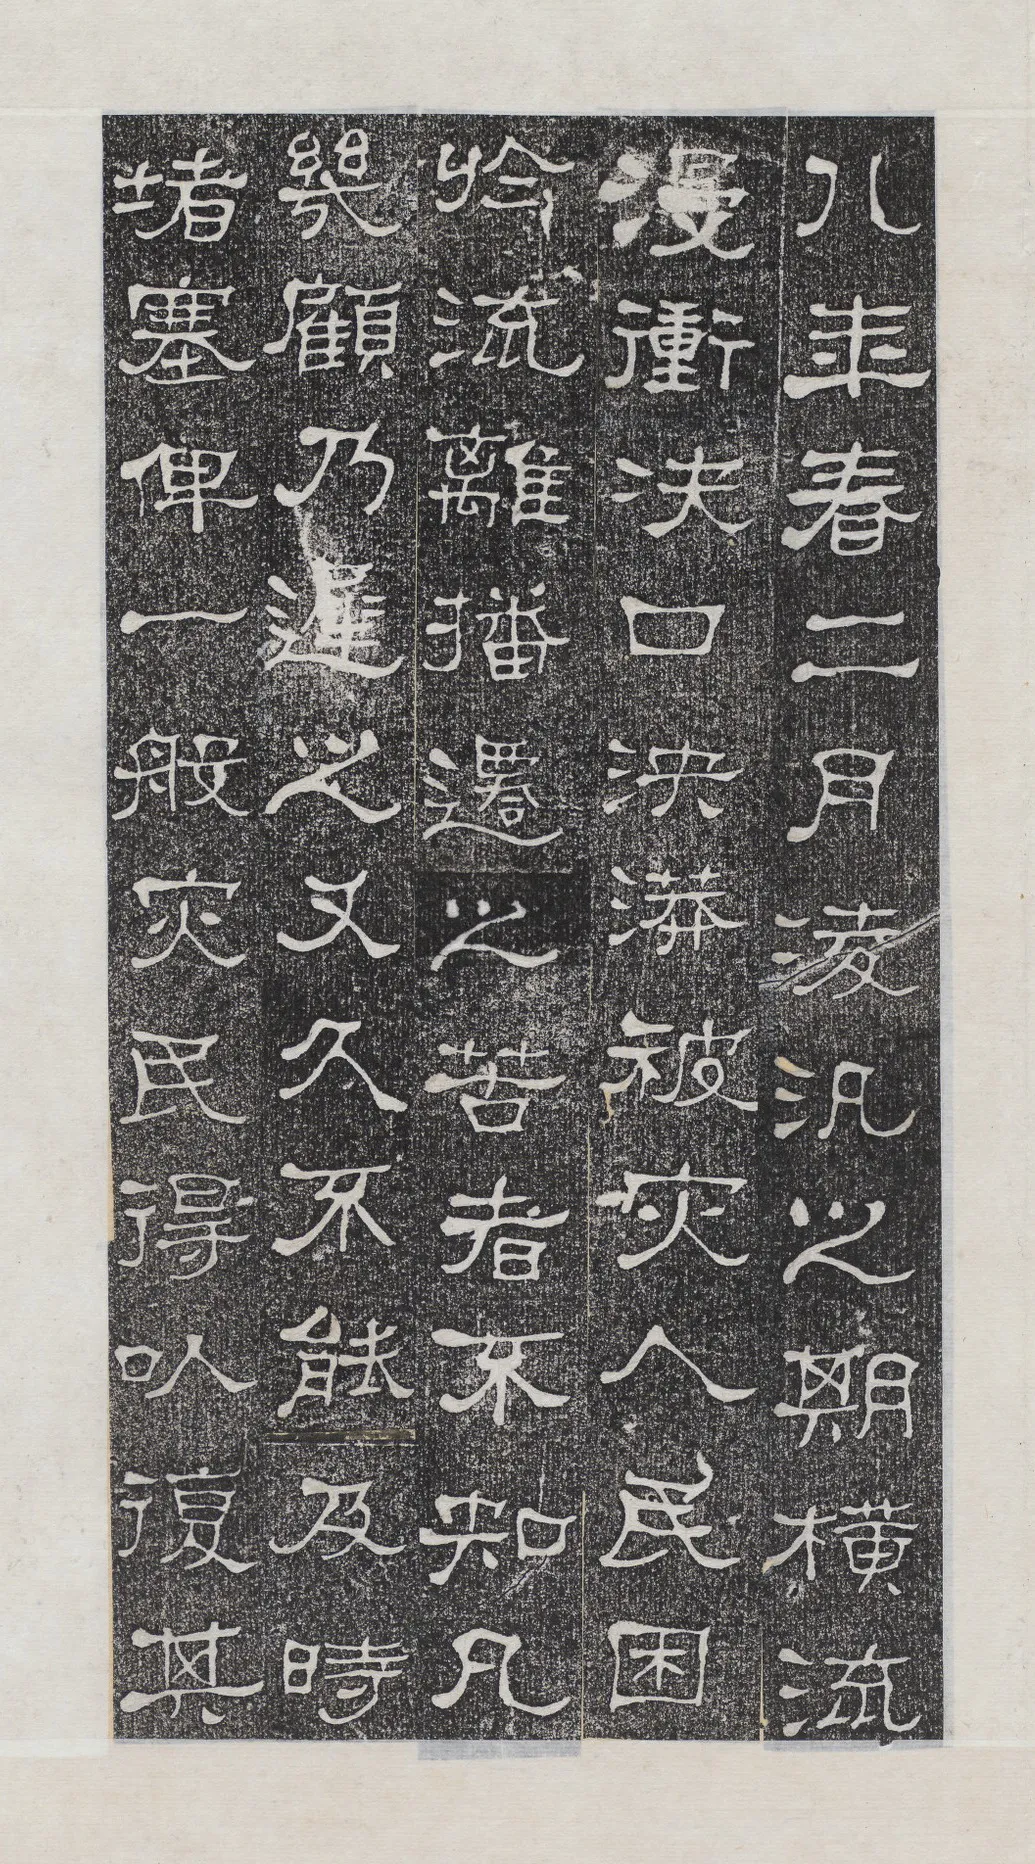 八年春二月凌汎之期橫流
漫衝決口泱漭被灾人民困
於流離播遷之苦者不知凡
幾顧乃遲之又久不能及時
堵塞俾一般灾民得以復其